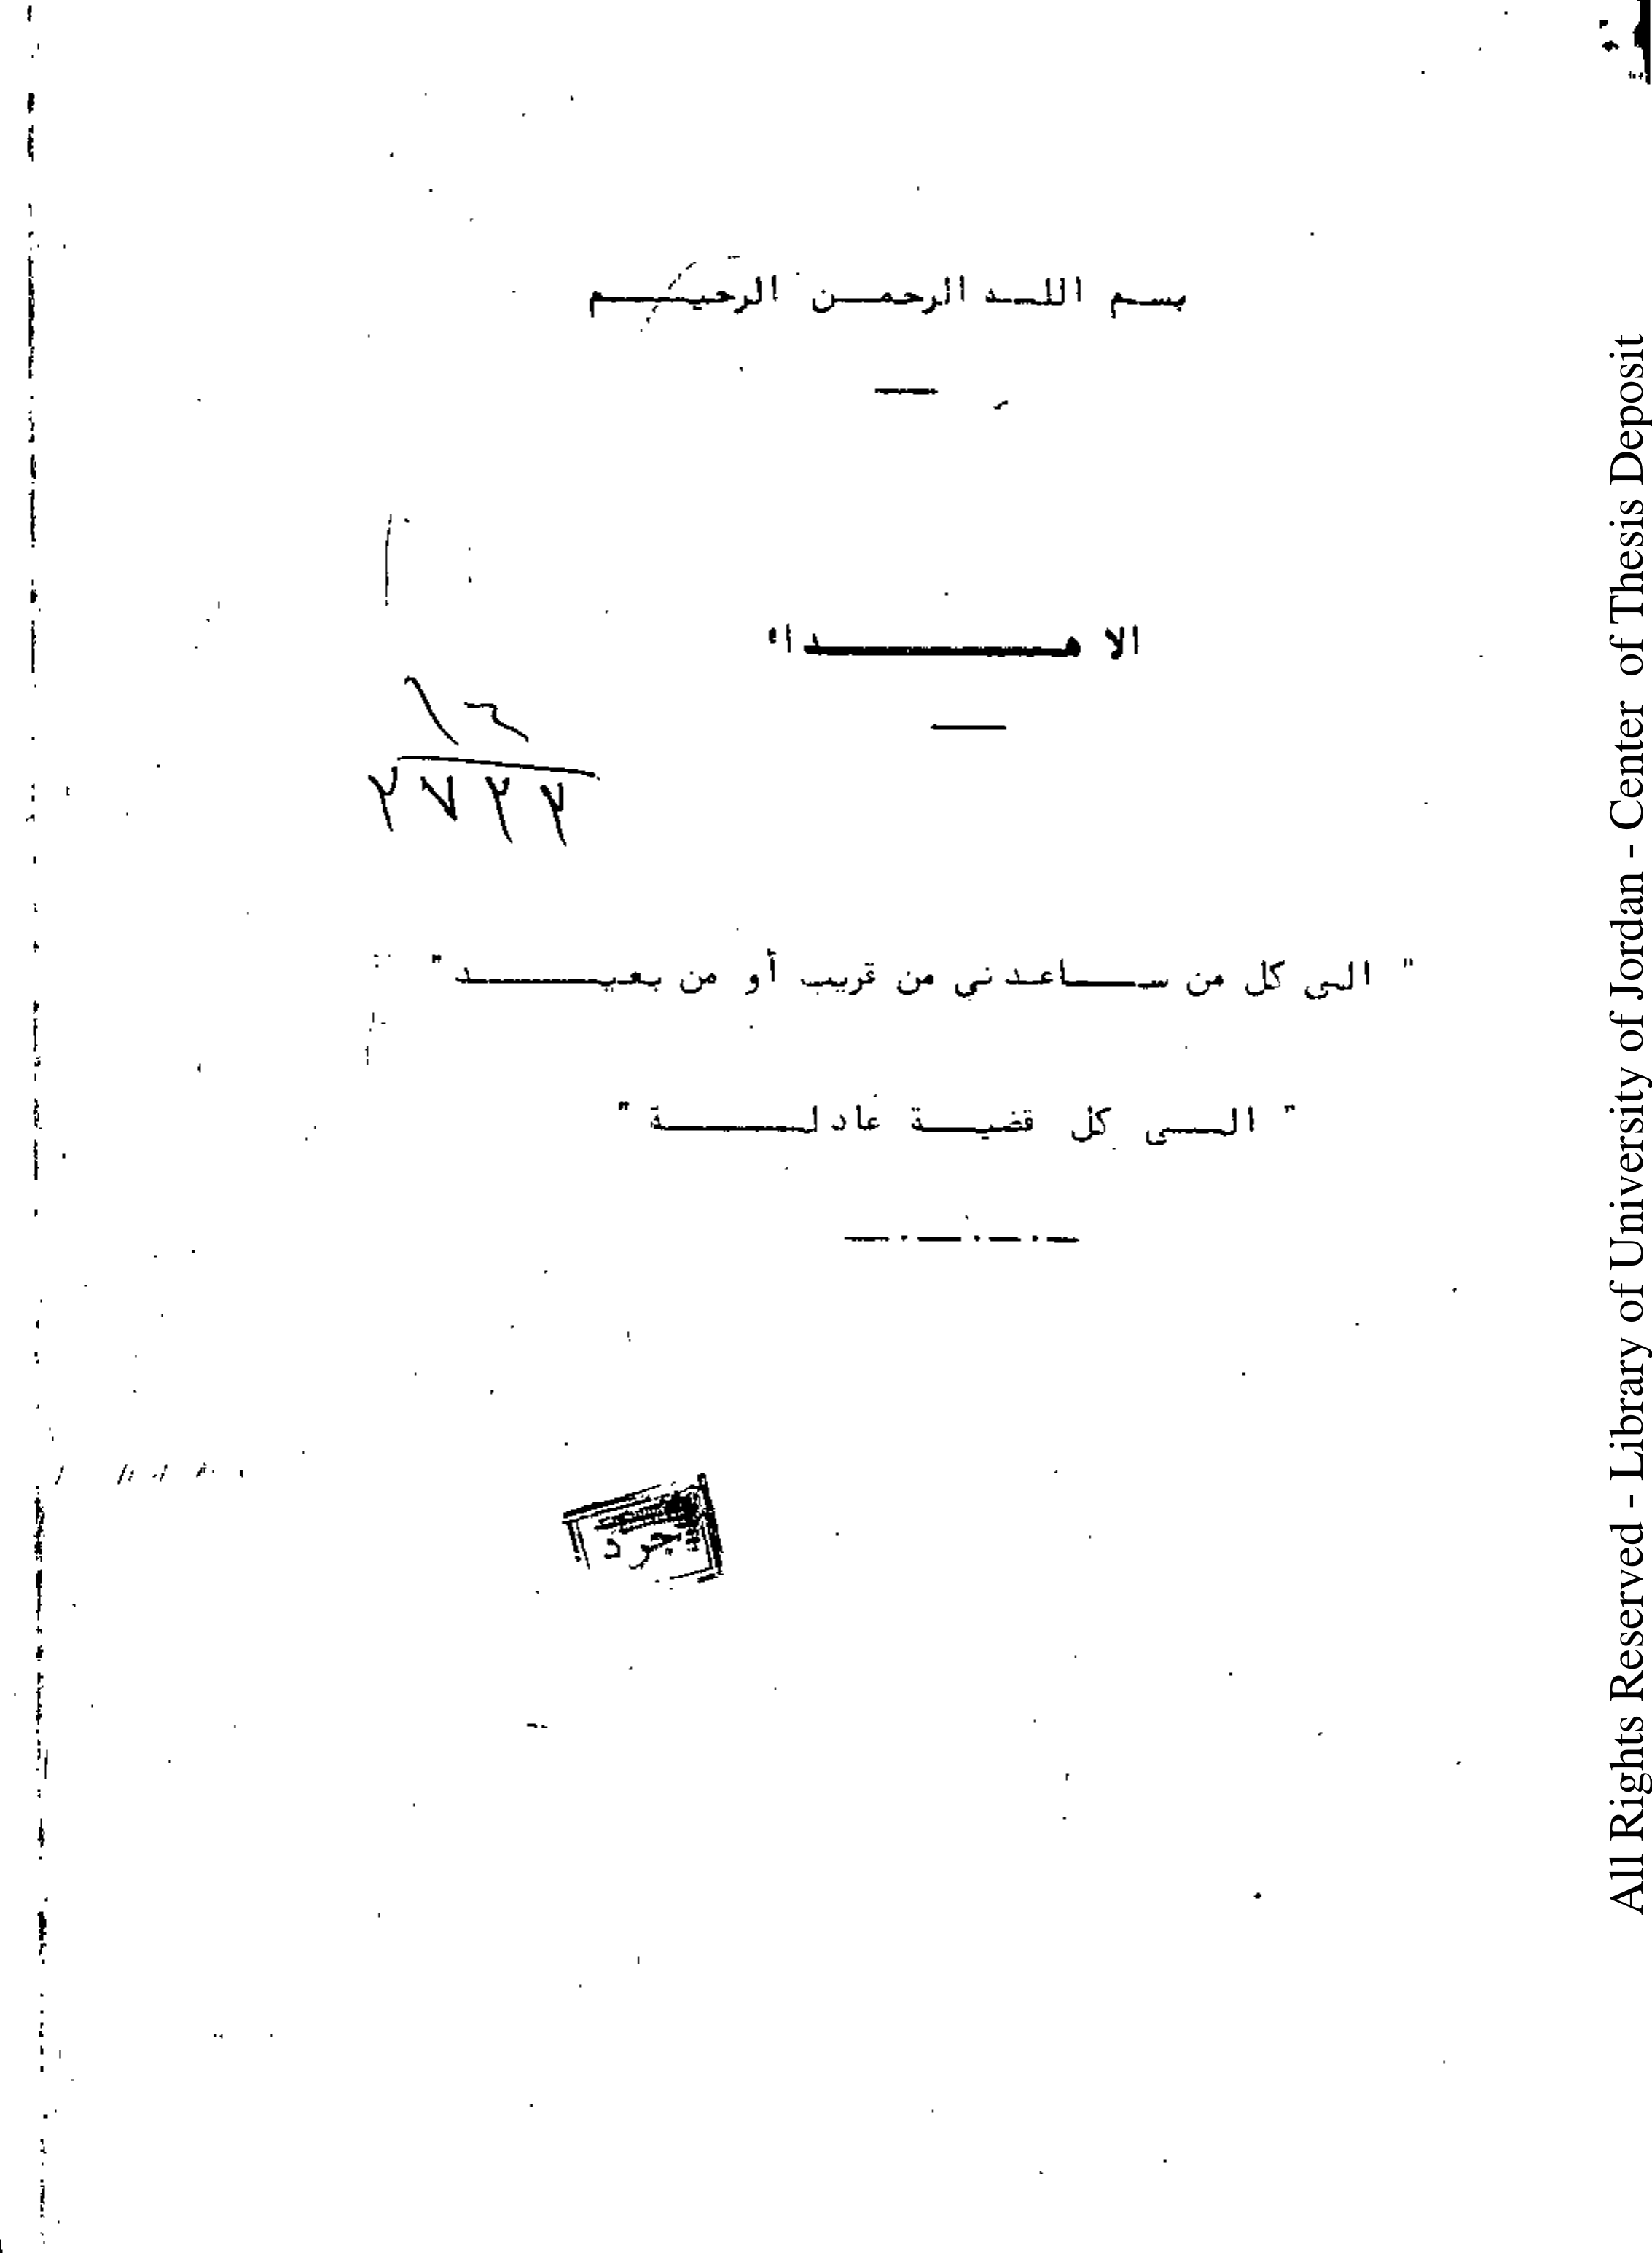 بسم الله الرحمن الرحيم
الاهداء
" الى كل من ساعدني من قريب أو من بعيد "
" الى كل قضية عادلة "
جرد
All Rights Reserved - Library of University of Jordan - Center of Thesis Deposit